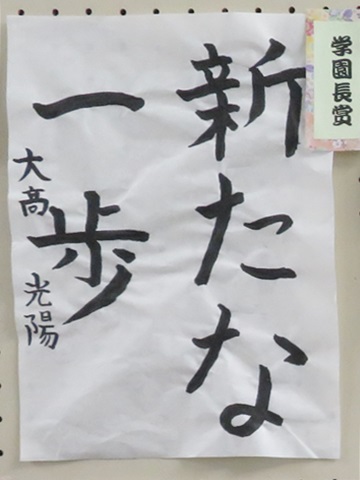 学園長賞
新たな
一歩
大高 光陽